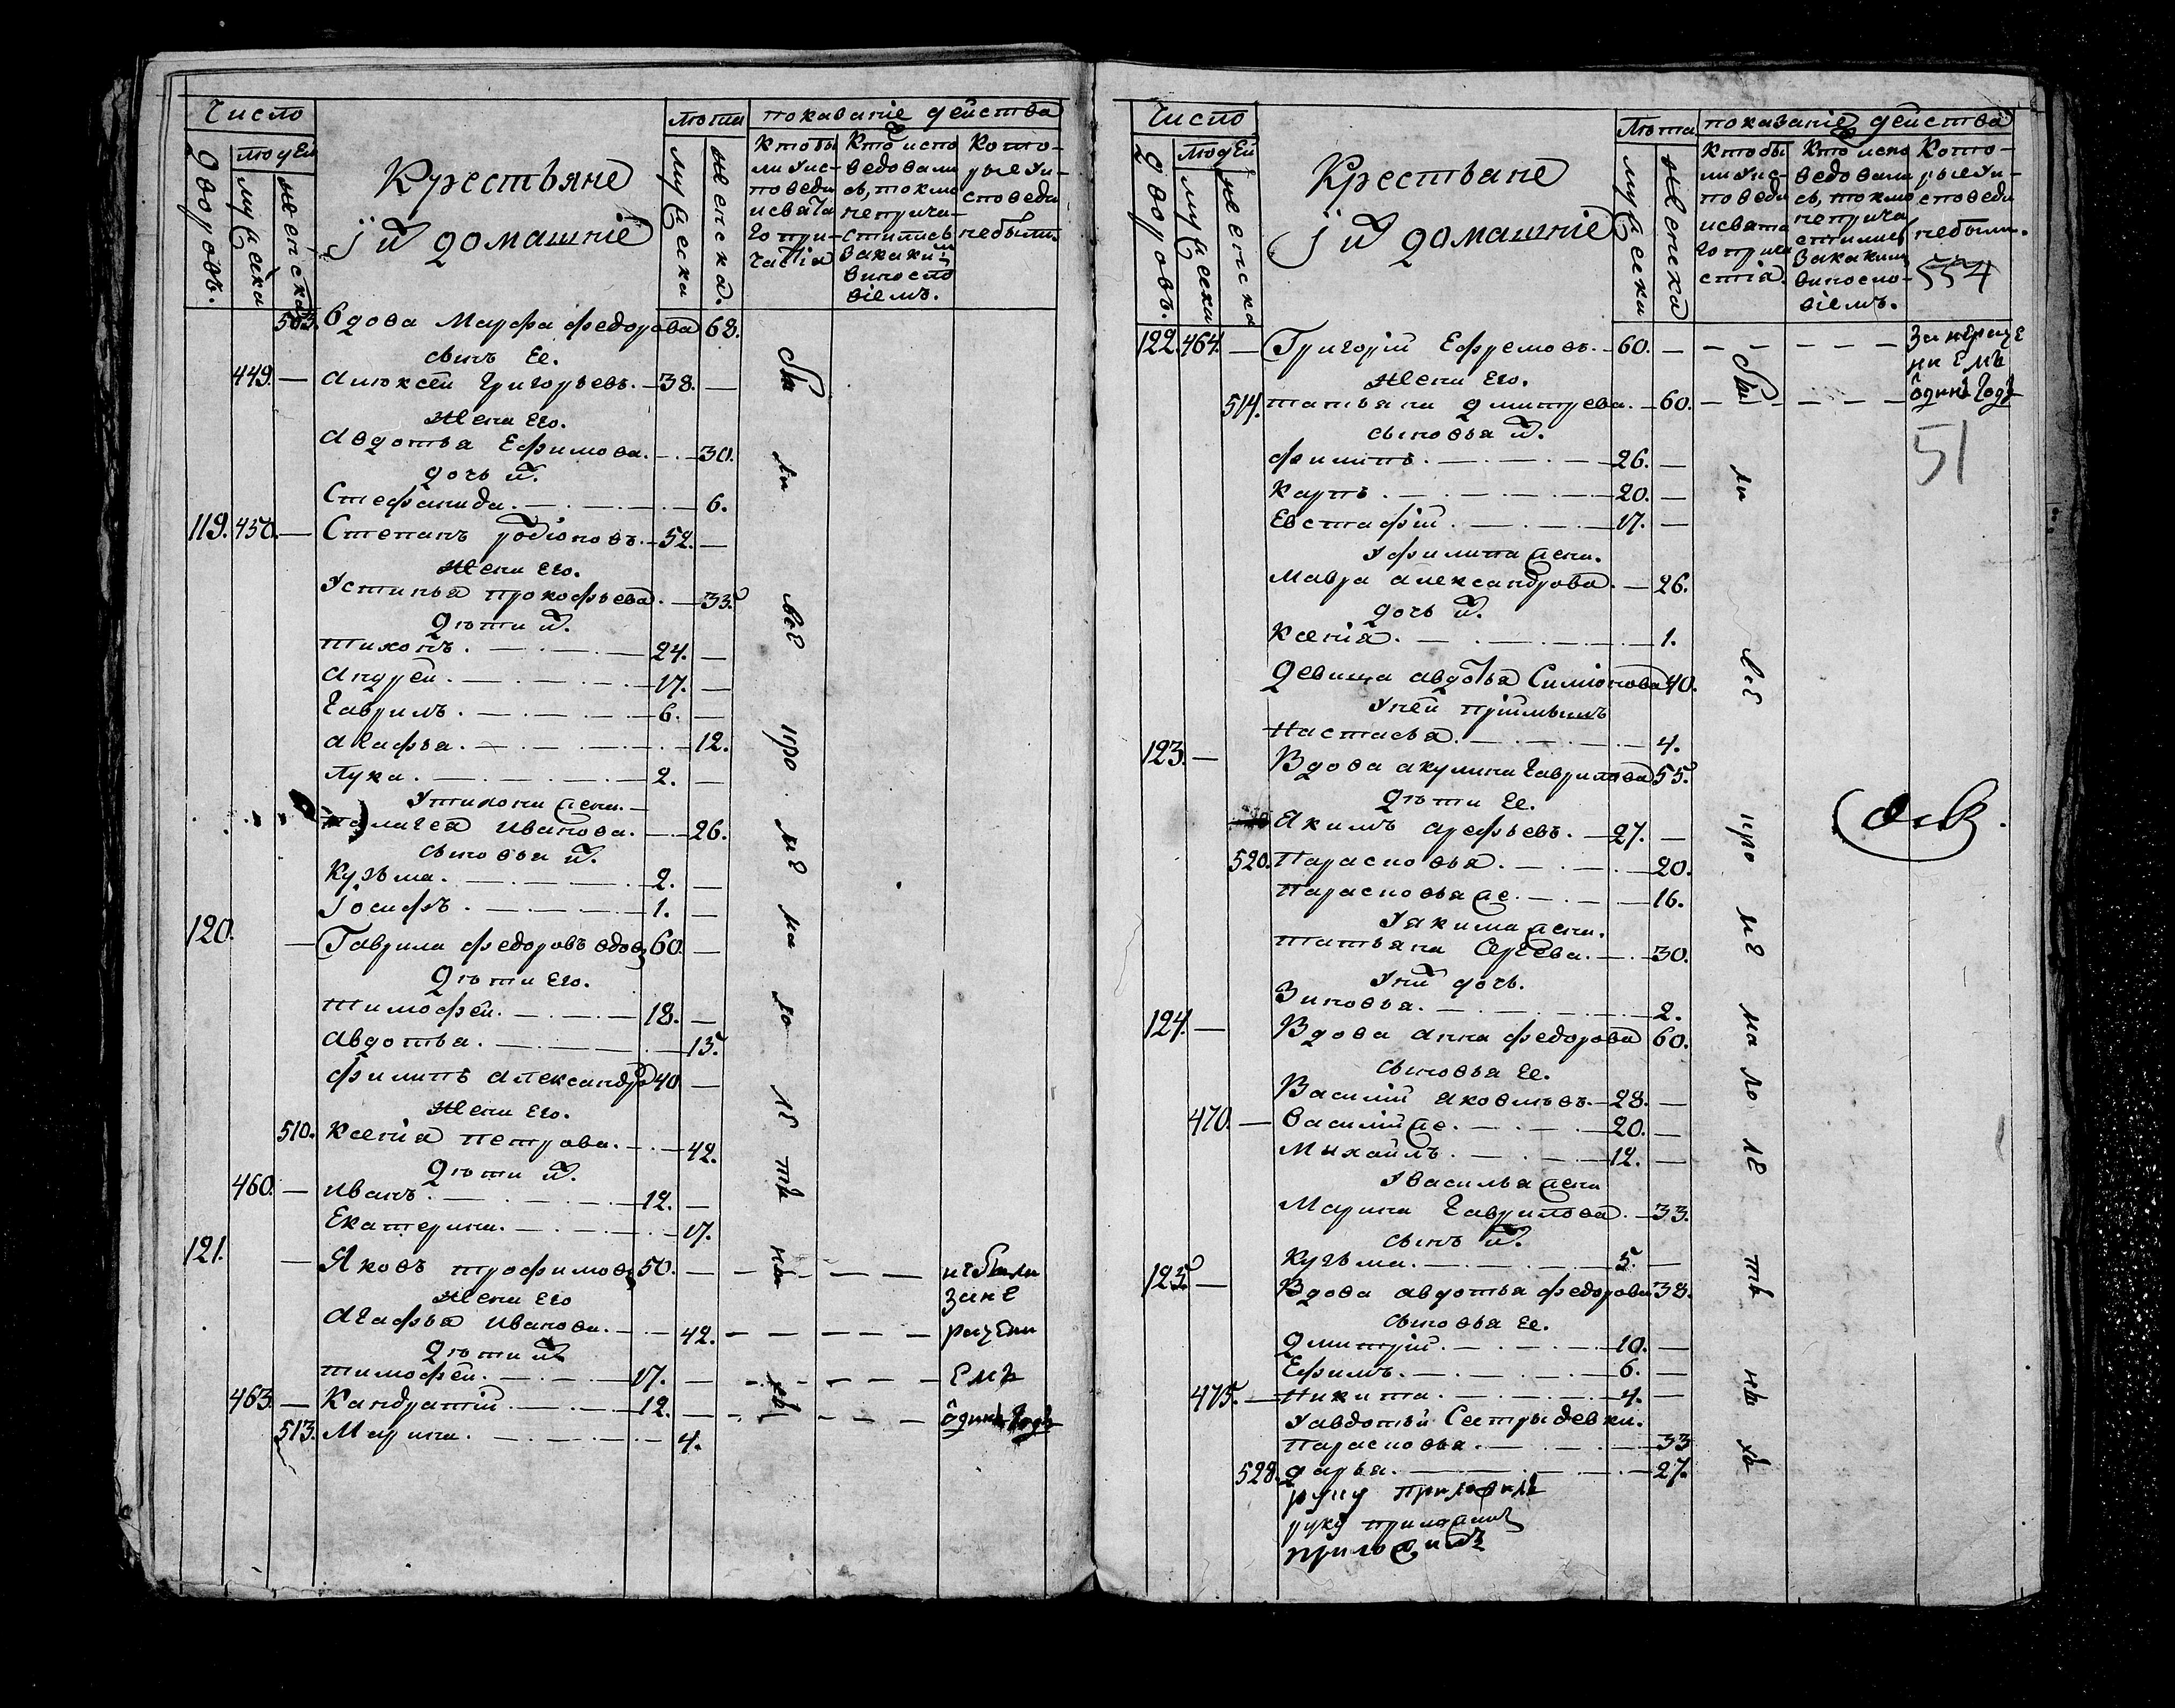 Число
людей
Дворовъ.
мужеска
женска
Крестьяне
и их домашніе
лѣта
мужеска
женска.
показаніе действа
Кто бы
ли у ис-
поведи
и свята
го при-
частія
Кто испо
ведовали
сь, токмо
не прича-
стились
за каким
винословіемъ.
Кото-
рые у и-
споведи
не были.
503. вдова Марфа федорова 68.
сынъ Ее.
449. — Алюксей Григорьевъ. — 38. —
жена Его.
Авдотья Ефимова. — 30.
дочь их.
Стефанида. — 6.
119. 450. — Степанъ родіоновъ. — 52. —
жена Его.
Устинья прокофьева. — 33.
Дѣти их.
тихонъ. — 24. —
Андрей. — 17. —
Гаврилъ. — 6. —
Агафья. — 12.
Лука. — 2. —
У тихона жена. —
палагея Иванова. — 26.
сыновья их.
Кузьма. — 2. —
Іосифъ. — 1. —
120. — Гаврила федоровъ вдов 60. —
Дѣти Его.
тимофей. — 18. —
Авдотья. — 15.
филипъ Александро 40. —
жена Его.
510. Ксенія петрова. — 42.
Дѣти их.
460. — Иванъ. — 12. —
Екатерина. — 17.
121. — Яковъ трофимов 50. — не были
жена Его
Агафья Иванова. — 42. —
Дѣти их
тимофей. — 17. —
463. — Кандратій. — 12. —
513. Марина. — 4.
за не
радени
емъ
одинъ годъ
бы
ли
все
про
ме
ма
ло
ле
тн
ны
хъ
Число
людей
Дворовъ.
мужеска
женска
Крестьяне
и их домашніе
Лѣта
мужеска
женска
показаніе действа
Кто бы
ли у ис-
поведи
и свята
го прича
стія.
Кто испо
ведовали
сь, токмо
не прича
стились
за каким
винословіемъ.
Кото-
рые у и-
споведи
не были.
554
122. 464. — Григорій Ефремовъ. — 60. —
жена Его.
514. татьяна дмитрева. — 60. —
За нераде
ни Емъ
одинъ годъ
51
сыновья их.
филипъ. — 26. —
Карпъ. — 20. —
Евстафій. — 17. —
У филипа жена.
Мавра Александрова. — 26.
дочь их.
Ксенія. — 1.
Девица авдотья Симіонова 40.
У ней пріимышъ
Настасья. — 4.
123. — Вдова акулина Гаврилова 55.
Дѣти Ее.
Якимъ арефьевъ. — 27. —
520. Парасковья. — 20.
Парасковья же. — 16.
У якима жена.
татьяна Сергева. — 30.
У них дочь.
Зиновья. — 2.
124. — Вдова Анна федорова 60.
Сыновья Ее.
Василій яковлевъ. — 28. —
470. — Василій же. — 20. —
Михайлъ. — 12. —
У василья жена
Марина Гаврилова. — 33.
сынъ их.
Кузьма. — 5. —
125. — Вдова авдотья федорова 38.
Сыновья Ее.
Дмитрій. — 10. —
Ефимъ. — 6. —
475. — Никита. — 4. —
У авдотьи Сестры девки.
Парасковья. — 33
528. дарья. — 27.
руку приложилъ
руку приложилъ
приложилъ
бы
ли
все
про
ме
ма
ло
ле
тн
ны
хъ